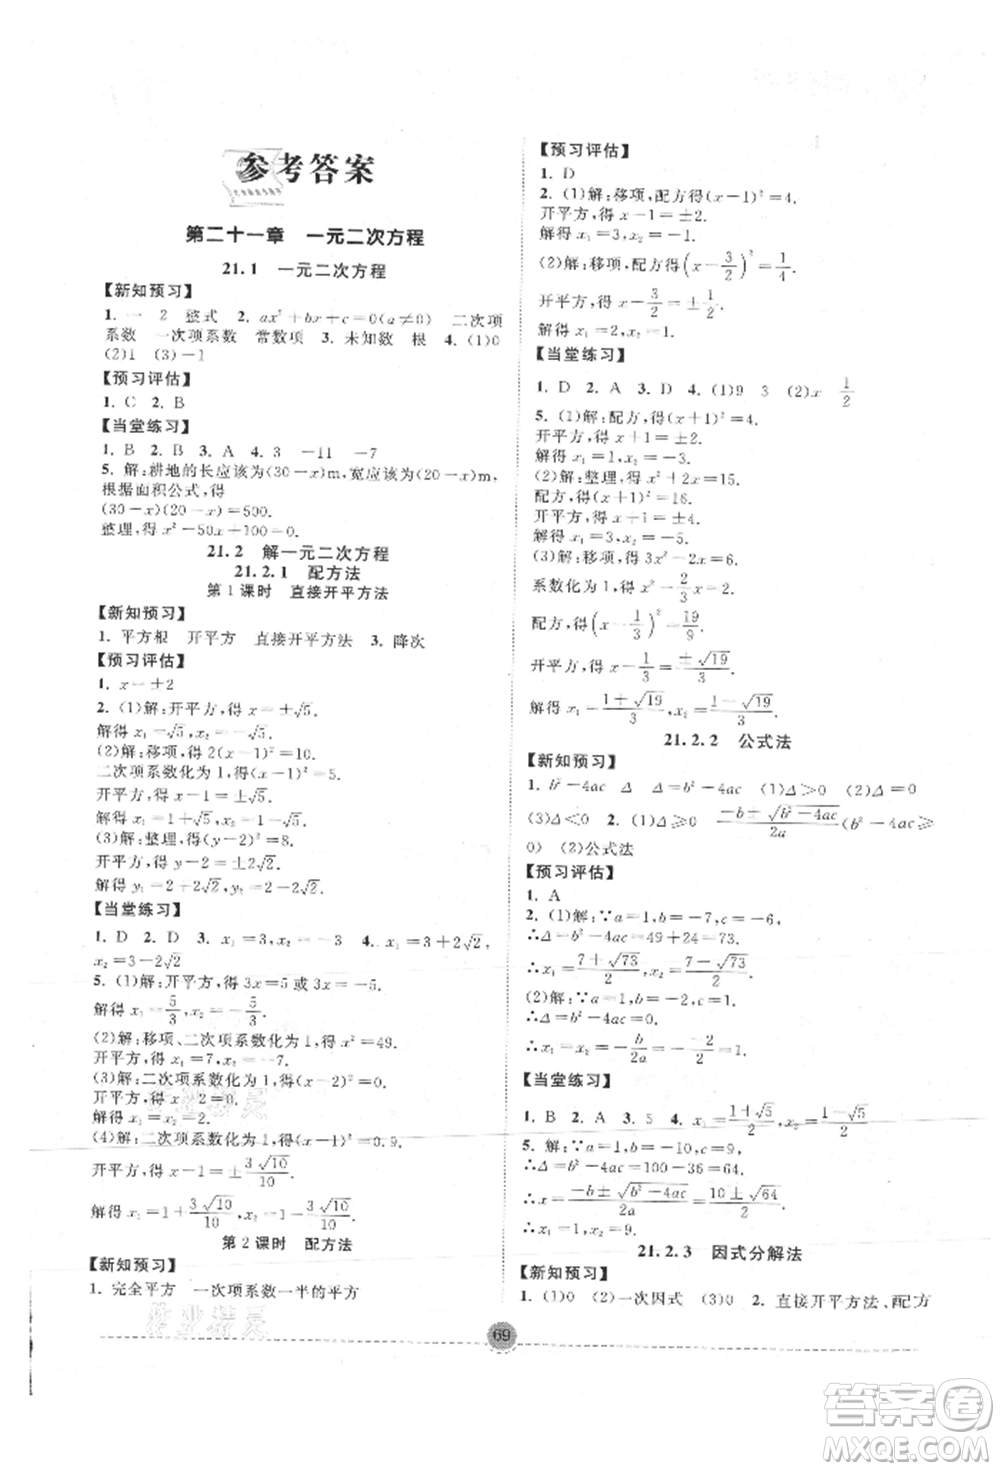 参考答案
第二十一章 一元二次方程
21.1 一元二次方程
【新知预习】
1. 一 2 整式 2. ax²+bx+c=0(a≠0) 二次项
系数 一次项系数 常数项 3. 未知数 根 4. (1)0
(2)1 (3)-1
【预习评估】
1. C 2. B
【当堂练习】
1. B 2. B 3. A 4. 3 -11 -7
5. 解:耕地的长应该为(30-x)m,宽应该为(20-x)m,
根据面积公式,得
(30-x)(20-x)=500.
整理,得 x²-50x+100=0.
21.2 解一元二次方程
21.2.1 配方法
第1课时 直接开平方法
【新知预习】
1. 平方根 开平方 直接开平方法 3. 降次
【预习评估】
1. x=±2
2. (1)解:开平方,得 x=±√5.
解得 x₁=√5,x₂=-√5.
(2)解:移项,得 2(x-1)²=10.
二次项系数化为 1,得(x-1)²=5.
开平方,得 x-1=±√5.
解得 x₁=1+√5,x₂=1-√5.
(3)解:整理,得(y-2)²=8.
开平方,得 y-2=±2√2.
解得 y₁=2+2√2,y₂=2-2√2.
【当堂练习】
1. D 2. D 3. x₁=3,x₂=-3 4. x₁=3+2√2,
x₂=3-2√2
5. (1)解:开平方,得 3x=5 或 3x=-5.
解得 x₁=5/3,x₂=-5/3.
(2)解:移项、二次项系数化为 1,得 x²=49.
开平方,得 x₁=7,x₂=-7.
(3)解:二次项系数化为 1,得(x-1)²=0.
开平方,得 x-1=0.
解得 x₁=x₂=1.
(4)解:二次项系数化为 1,得(x-1)²=0.9.
开平方,得 x-1=±3√10/10.
解得 x₁=1+3√10/10,x₂=1-3√10/10.
第2课时 配方法
【新知预习】
1. 完全平方 一次项系数一半的平方
【预习评估】
1. D
2. (1)解:移项,配方,得(x-1)²=4.
开平方,得 x-1=±2.
解得 x₁=3,x₂=-1.
(2)解:移项,配方,得(x-3/2)²=1/4.
开平方,得 x-3/2=±1/2.
解得 x₁=2,x₂=1.
【当堂练习】
1. D 2. A 3. D 4. (1)9 3 (2)x 1/2
5. (1)解:配方,得(x+1)²=4.
开平方,得 x+1=±2.
解得 x₁=1,x₂=-3.
(2)解:整理,得 x²+2x=15.
配方,得(x+1)²=16.
解得 x₁=3,x₂=-5.
(3)解:移项,得 3x²-2x=6.
系数化为 1,得 x²-2/3x=2.
配方,得(x-1/3)²=19/9.
开平方,得 x-1/3=±√19/3.
解得 x₁=1+√19/3,x₂=1-√19/3.
21.2.2 公式法
【新知预习】
1. b²-4ac Δ Δ=b²-4ac (1)Δ>0 (2)Δ=0
(3)Δ<0 2. (1)Δ≥0 -b±√b²-4ac/2a(b²-4ac≥
0) (2)公式法
【预习评估】
1. A
2. (1)解:∵a=1,b=-7,c=-6,
∴Δ=b²-4ac=49+24=73.
∴x₁=7+√73/2,x₂=7-√73/2.
(2)解:∵a=1,b=2,c=1,
∴Δ=b²-4ac=0.
∴x₁=x₂=-b/2a=-2/2=-1.
【当堂练习】
1. B 2. A 3. 5 4. x₁=1+√5/2,x₂=1-√5/2
5. 解:∵a=1,b=-10,c=9,
∴Δ=b²-4ac=100-36=64.
∴x=-b±√b²-4ac/2a=10±√64/2.
∴x₁=1,x₂=9.
21.2.3 因式分解法
【新知预习】
1. (1)0 (2)一次因式 (3)0 2. 直接开平方法、配方
69
作业精灵
答案卷
MXQE.COM